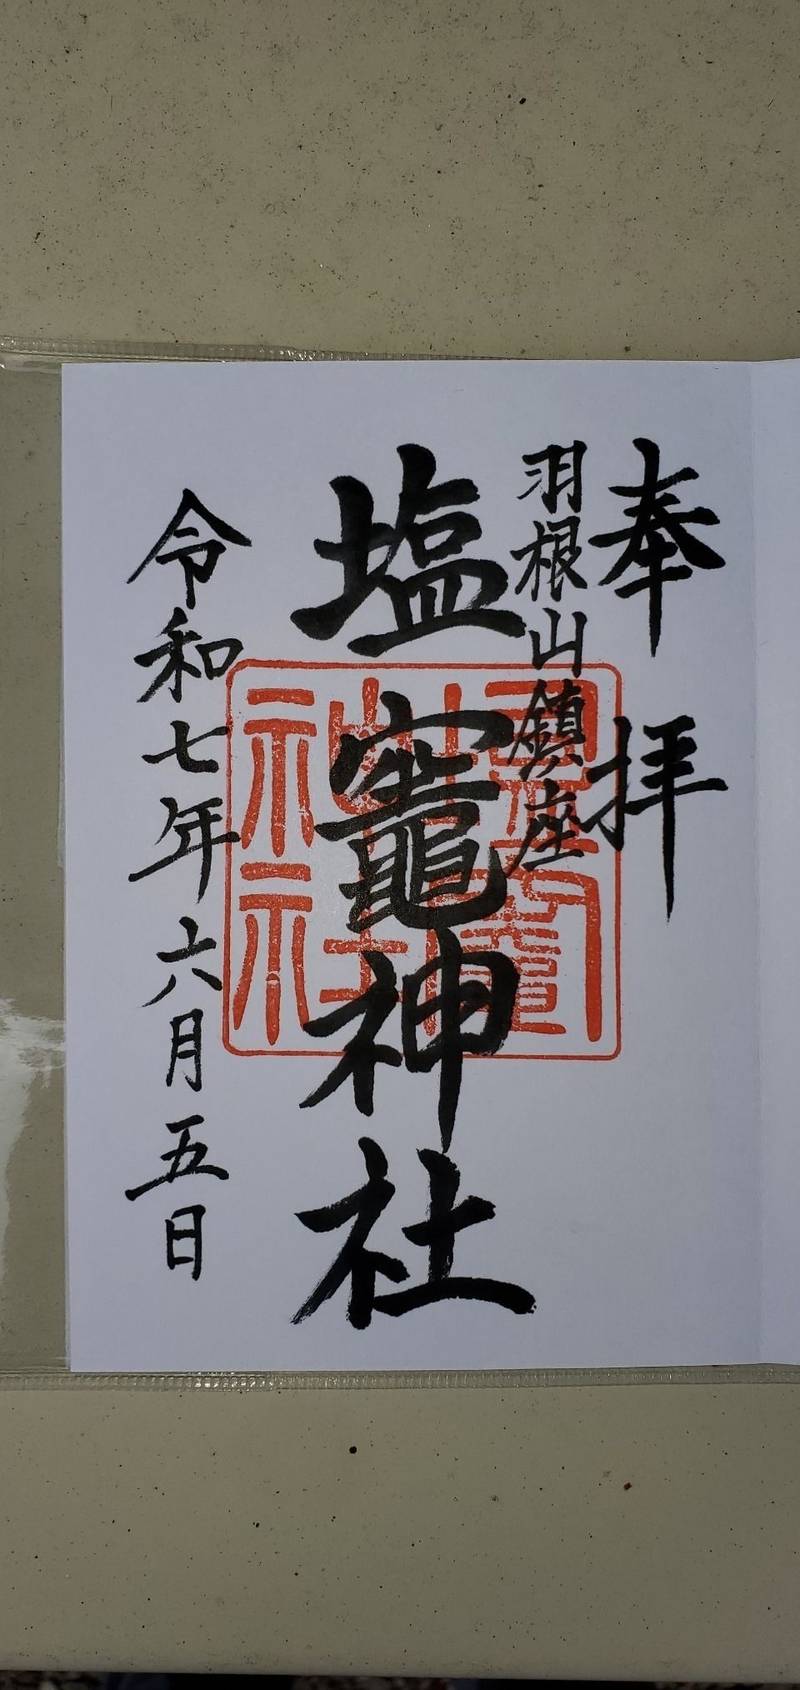 奉拝
羽根山鎮座
塩竈神社
令和七年六月五日